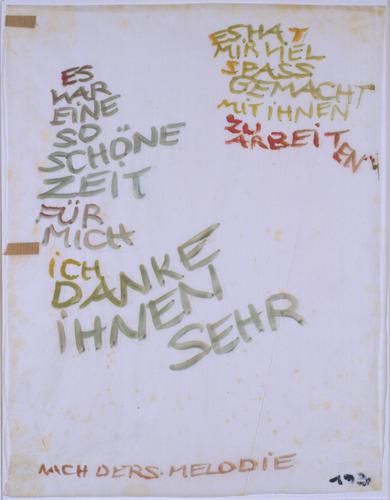 ES
WAR
EINE
SO
SCHÖNE
ZEIT
FÜR
MICH
ICH
DANKE
IHNEN
SEHR
ES HAT
MIR VIEL
SPASS
GEMACHT
MIT IHNEN
ZU
ARBEITEN
NACH DER S. MELODIE